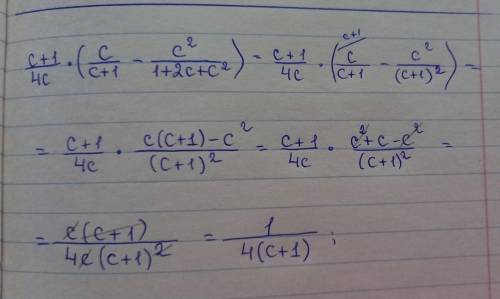 (c+1)/(4c) · (c/(c+1) − c²/(1+2c+c²)) = (c+1)/(4c) · (c/(c+1) ^(c+1) − c²/(c+1)²) =
= (c+1)/(4c) · (c(c+1)−c²)/(c+1)² = (c+1)/(4c) · (c²+c−c²)/(c+1)² =
= (c(c+1))/(4c(c+1)²) = 1/(4(c+1)) ;